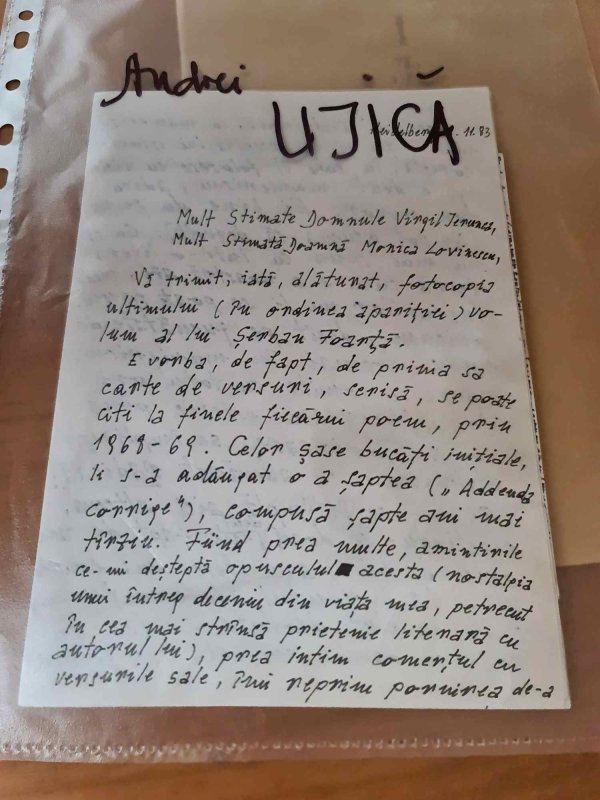 Andrei
UJICĂ
Heidelberg, . 11. 83
Mult Stimate Domnule Virgil Ierunca,
Mult Stimată Doamnă Monica Lovinescu,
Vă trimit, iată, alăturat, fotocopia
ultimului (în ordinea apariţiei) vo-
lum al lui Şerban Foarţă.
E vorba, de fapt, de prima sa
carte de versuri, scrisă, se poate
citi la finele fiecărui poem, prin
1968-69. Celor şase bucăţi iniţiale,
li s-a adăugat o a şaptea („Addenda
corrige"), compusă şapte ani mai
tîrziu. Fiind prea multe, amintirile
ce-mi deşteptă opusculul acesta (nostalgia
unui întreg deceniu din viaţa mea, petrecut
în cea mai strînsă prietenie literară cu
autorul lui), prea intim comerţul cu
versurile sale, îmi reprim pornirea de-a